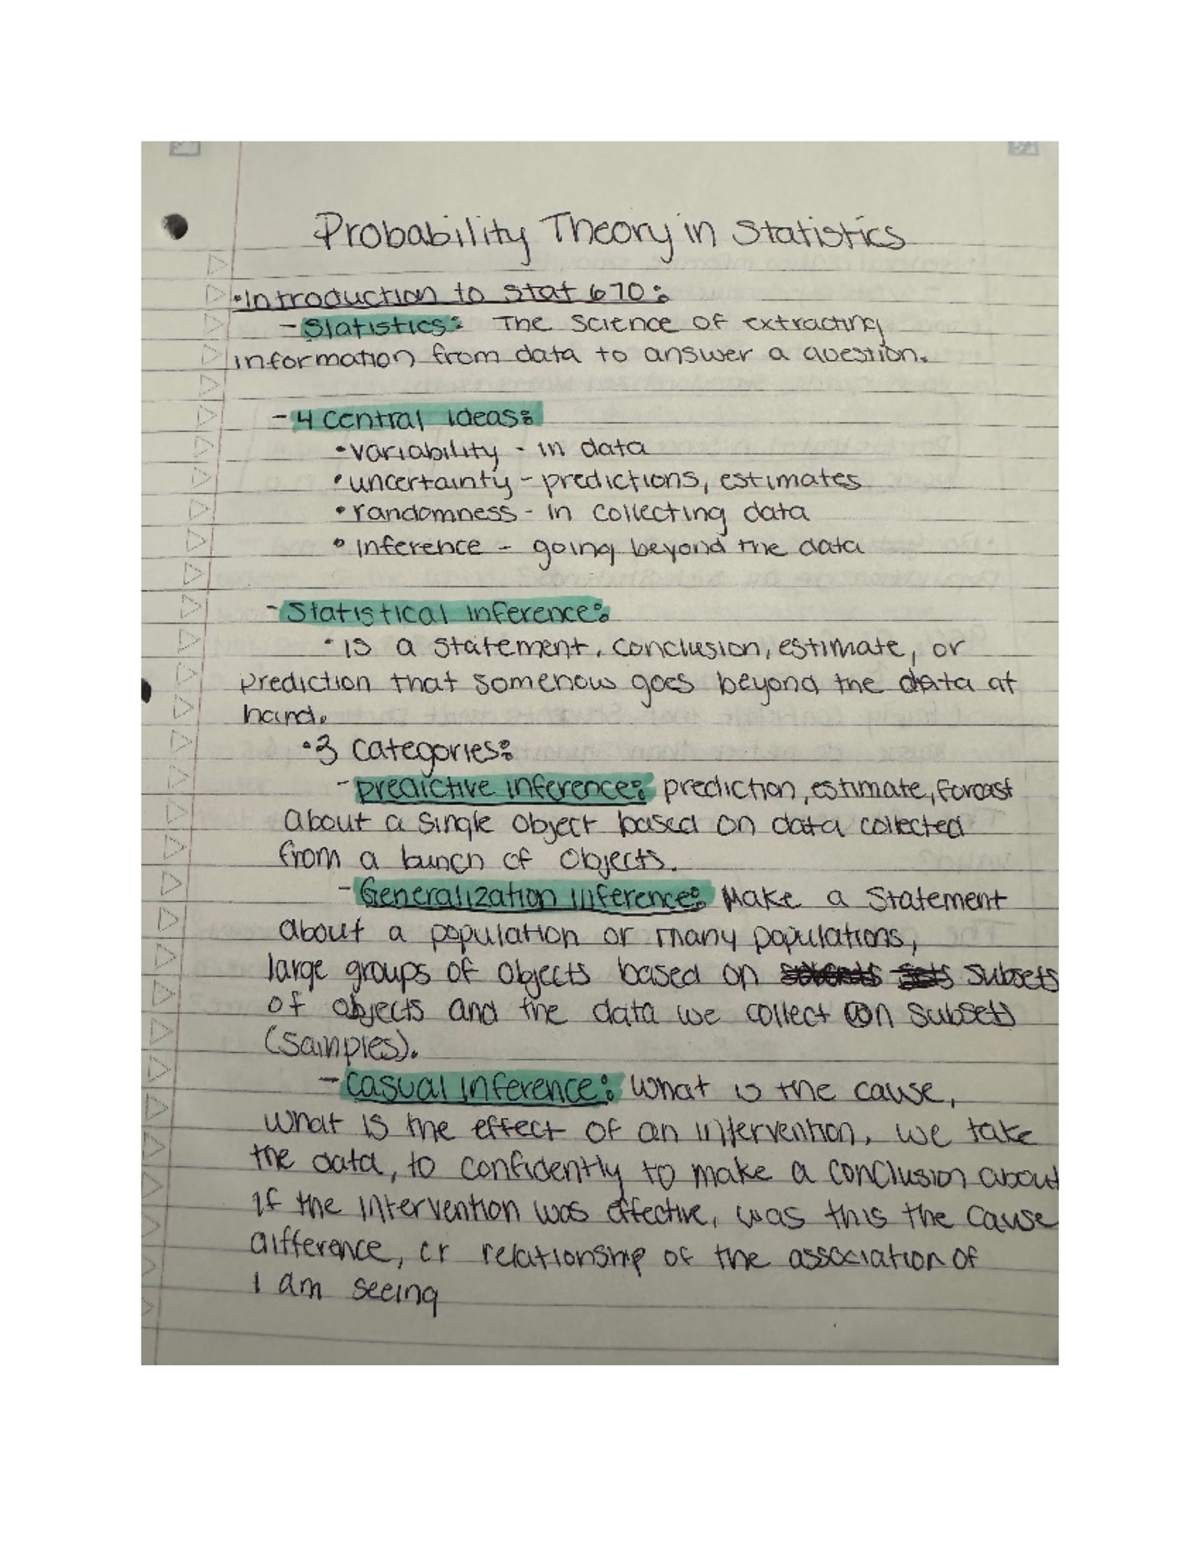 Probability Theory in Statistics
•Introduction to Stat 670:
- Statistics: The Science of extracting
information from data to answer a question.
- 4 Central Ideas:
•variability - in data
•uncertainty - predictions, estimates
•randomness - in collecting data
• inference - going beyond the data
- Statistical inference:
• is a statement, conclusion, estimate, or
prediction that somehow goes beyond the data at
hand.
•3 categories:
- predictive inference: prediction, estimate, forcast
about a single object based on data collected
from a bunch of objects.
- Generalization inference: Make a Statement
about a population or many populations,
large groups of objects based on subsets
of objects and the data we collect on subsets
(samples).
- casual inference: what is the cause,
what is the effect of an intervention, we take
the data, to confidently to make a conclusion about
if the intervention was effective, was this the cause
difference, or relationship of the association of
I am seeing